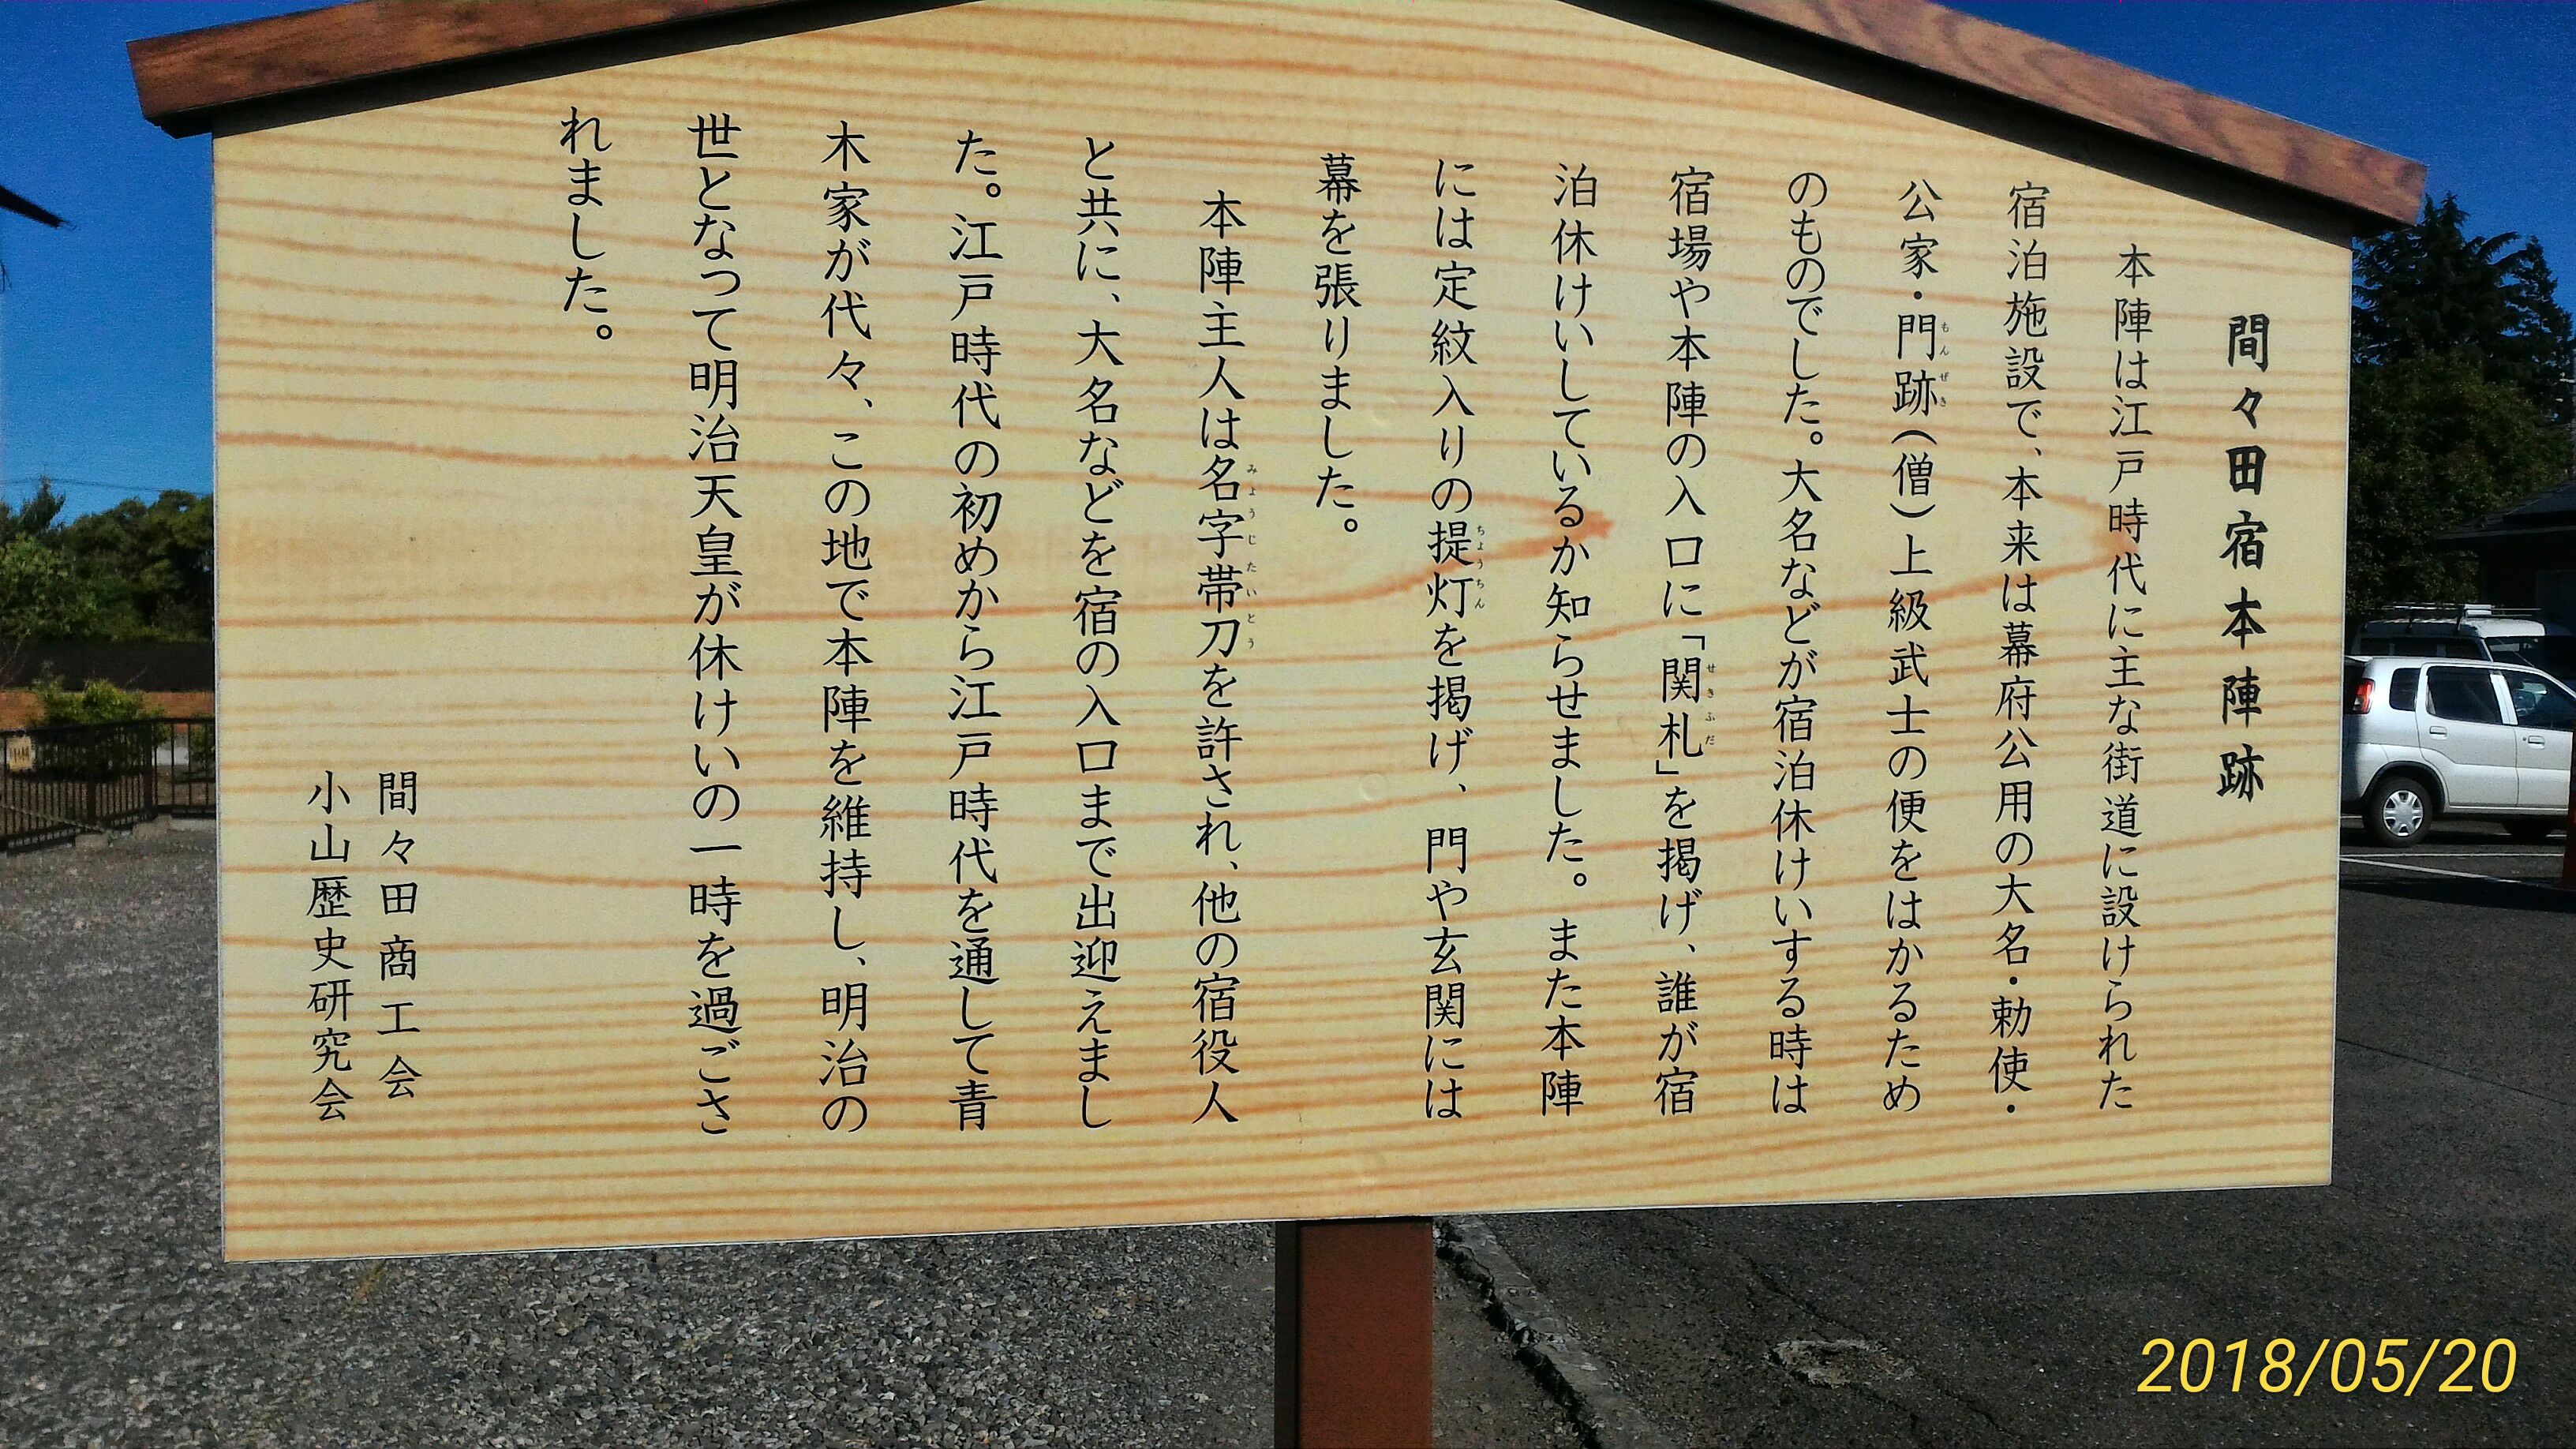 間々田宿本陣跡
本陣は江戸時代に主な街道に設けられた
宿泊施設で、本来は幕府公用の大名・勅使・
公家・門跡（僧）上級武士の便をはかるため
もんぜき
のものでした。大名などが宿泊休けいする時は
宿場や本陣の入口に「関札」を掲げ、誰が宿
せきふだ
泊休けいしているか知らせました。また本陣
には定紋入りの提灯を掲げ、門や玄関には
ちょうちん
幕を張りました。
本陣主人は名字帯刀を許され、他の宿役人
みょうじたいとう
と共に、大名などを宿の入口まで出迎えまし
た。江戸時代の初めから江戸時代を通して青
木家が代々、この地で本陣を維持し、明治の
世となつて明治天皇が休けいの一時を過ごさ
れました。
間々田商工会
小山歴史研究会
2018/05/20